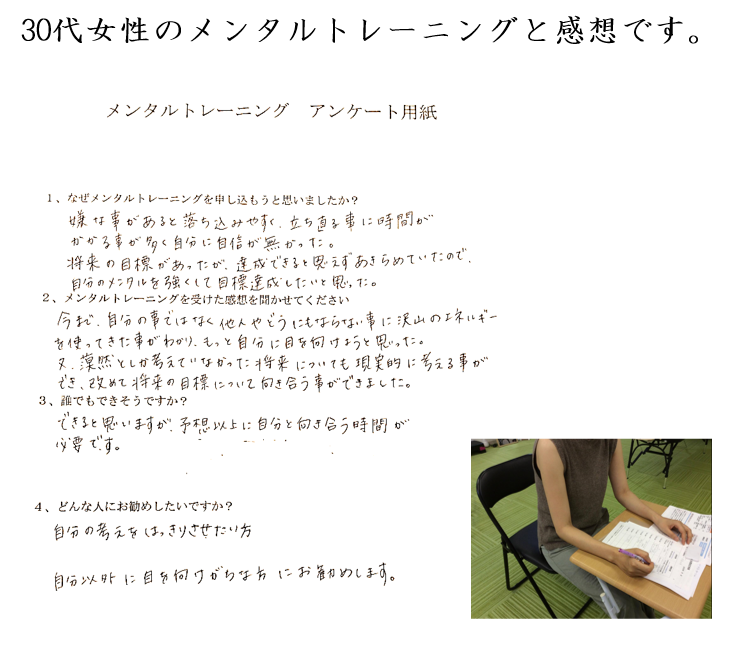 30代女性のメンタルトレーニングと感想です。
メンタルトレーニング　アンケート用紙
１、なぜメンタルトレーニングを申し込もうと思いましたか？
嫌な事があると落ち込みやすく、立ち直る事に時間が
かかる事が多く自分に自信が無かった。
将来の目標があったが、達成できると思えずあきらめていたので、
自分のメンタルを強くして目標達成したいと思った。
２、メンタルトレーニングを受けた感想を聞かせてください
今まで、自分の事ではなく他人やどうにもならない事に沢山のエネルギー
を使ってきた事がわかり、もっと自分に目を向けようと思った。
又、漠然としか考えていなかった将来についても現実的に考える事が
でき、改めて将来の目標について向き合う事ができました。
３、誰でもできそうですか？
できると思いますが、予想以上に自分と向き合う時間が
必要です。
４、どんな人にお勧めしたいですか？
自分の考えをはっきりさせたい方
自分以外に目を向けがちな方にお勧めします。